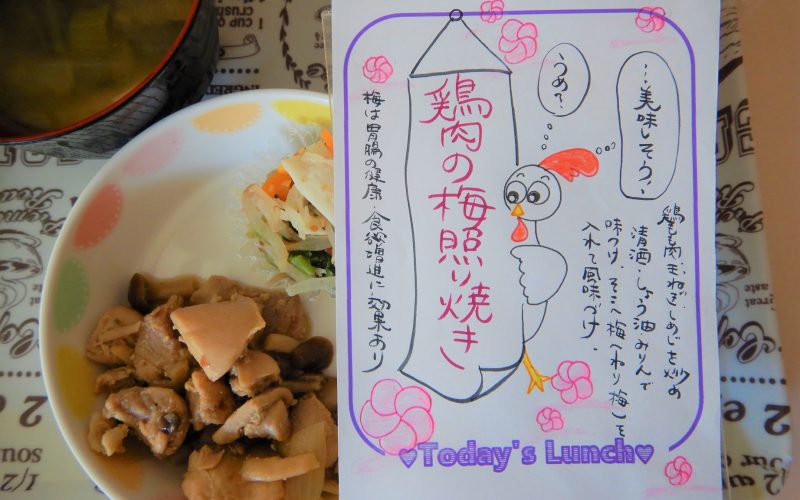 …美味しそう、
うめ?
鶏もも肉・玉ねぎ・しめじを炒め
清酒・しょう油・みりんで
味つけ、そこへ梅(ねり梅)を
入れて風味づけ、
鶏肉の梅照り焼き
梅は胃腸の健康・食欲増進に効果あり
♥Today's Lunch♥
1 CUP OF
crushe
1/2
SOUS
2 e